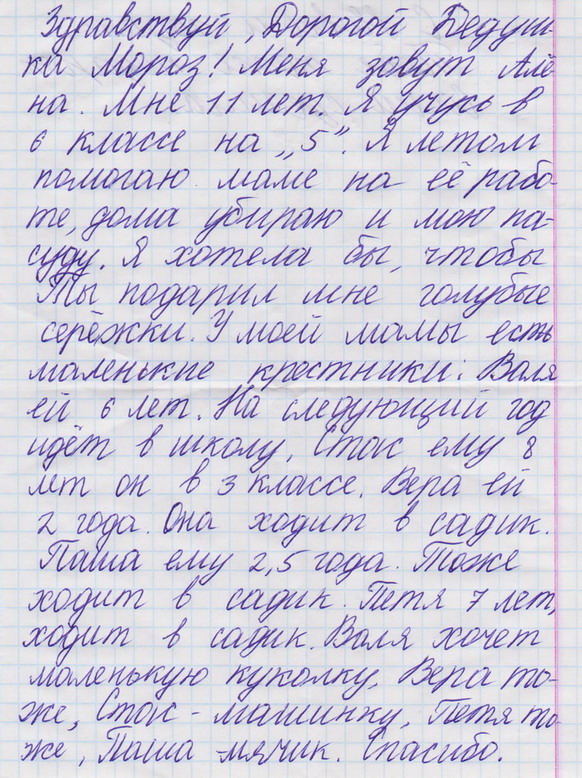 Здравствуй, Дорогой Дедуш-
ка Мороз! Меня зовут Алё
на. Мне 11 лет. Я учусь в
6 классе на „5". Я летом
помогаю маме на её рабо-
те, дома убираю и мою па-
суду. Я хотела бы, чтобы
Ты подарил мне голубые
серёжки. У моей мамы есть
маленькие крестники: Валя
ей 6 лет. На следующий год
идёт в школу, Стас ему 8
лет он в 3 классе. Вера ей
2 года. Она ходит в садик.
Паша ему 2,5 года. Тоже
ходит в садик. Петя 7 лет,
ходит в садик. Валя хочет
маленькую куколку, Вера то-
же, Стас - машинку, Петя то
же, Паша - мячик. Спасибо.